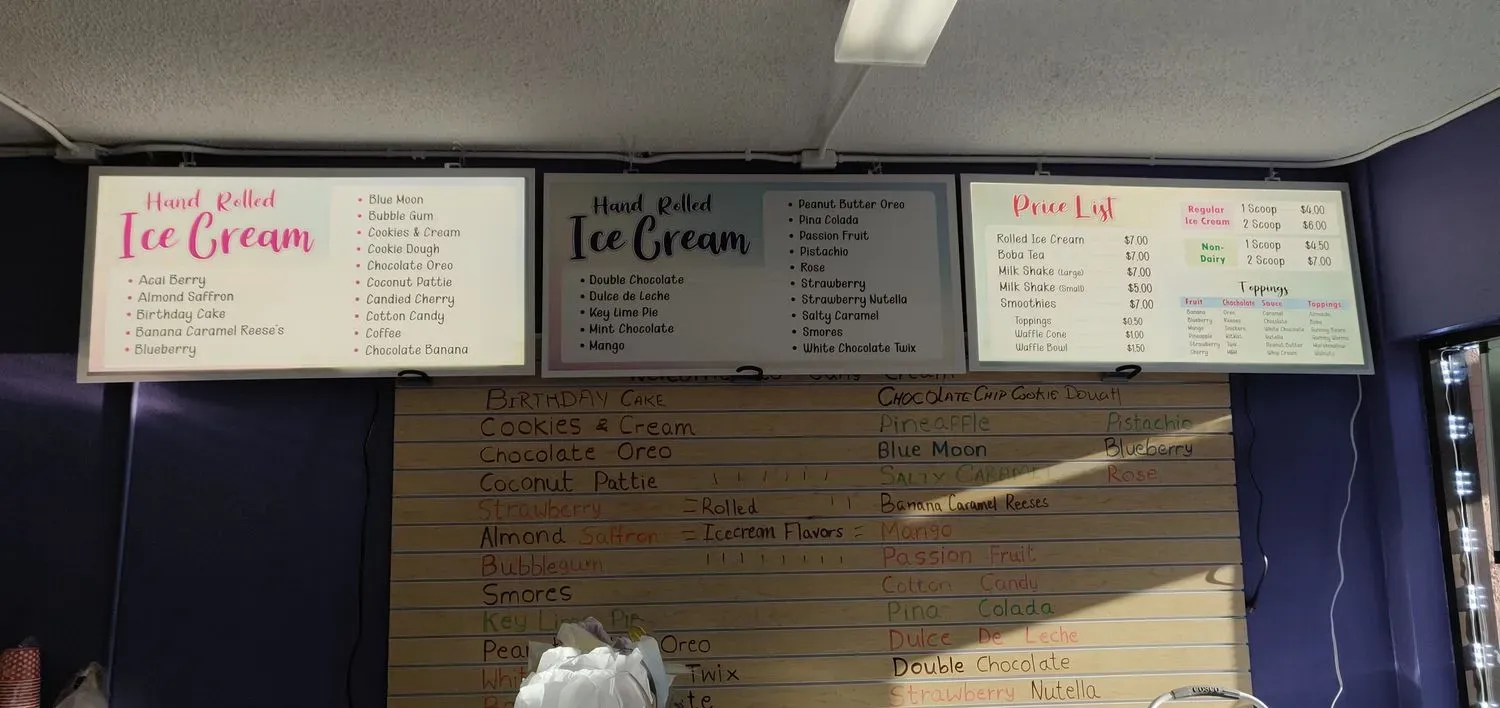 Hand Rolled
Ice Cream
• Acai Berry
• Almond Saffron
• Birthday Cake
• Banana Caramel Reese's
• Blueberry
• Blue Moon
• Bubble Gum
• Cookies & Cream
• Cookie Dough
• Chocolate Oreo
• Coconut Pattie
• Candied Cherry
• Cotton Candy
• Coffee
• Chocolate Banana
Hand Rolled
Ice Cream
• Double Chocolate
• Dulce de Leche
• Key Lime Pie
• Mint Chocolate
• Mango
• Peanut Butter Oreo
• Pina Colada
• Passion Fruit
• Pistachio
• Rose
• Strawberry
• Strawberry Nutella
• Salty Caramel
• Smores
• White Chocolate Twix
Price List
Rolled Ice Cream $7.00
Boba Tea $7.00
Milk Shake (Large) $7.00
Milk Shake (Small) $5.00
Smoothies $7.00
Toppings $0.50
Waffle Cone $1.00
Waffle Bowl $1.50
Regular Ice Cream
1 Scoop $4.00
2 Scoop $6.00
Non-Dairy
1 Scoop $4.50
2 Scoop $7.00
Toppings
Fruit Chocholate Sauce Toppings
Banana Oreo Caramel Almonds
Blueberry Reeses Chocolate Boba
Mango Snickers White Chocolate Gummy Bears
Pineapple Kitkat Nutella Gummy Worms
Strawberry Twix Peanut Butter Marshmallow
Cherry M&M Whip Cream Walnuts
BIRTHDAY CAKE
Cookies & Cream
Chocolate Oreo
Coconut Pattie
Strawberry
Almond Saffron
Bubblegum
Smores
Key Lime Pie
Oreo
Twix
=Rolled
=Icecream Flavors=
CHOCOLATE CHIP Cookie Dough
Pineapple Pistachio
Blue Moon Blueberry
SALTY CARAMEL Rose
Banana Caramel Reeses
Mango
Passion Fruit
Cotton Candy
Pina Colada
Dulce De Leche
Double Chocolate
Strawberry Nutella